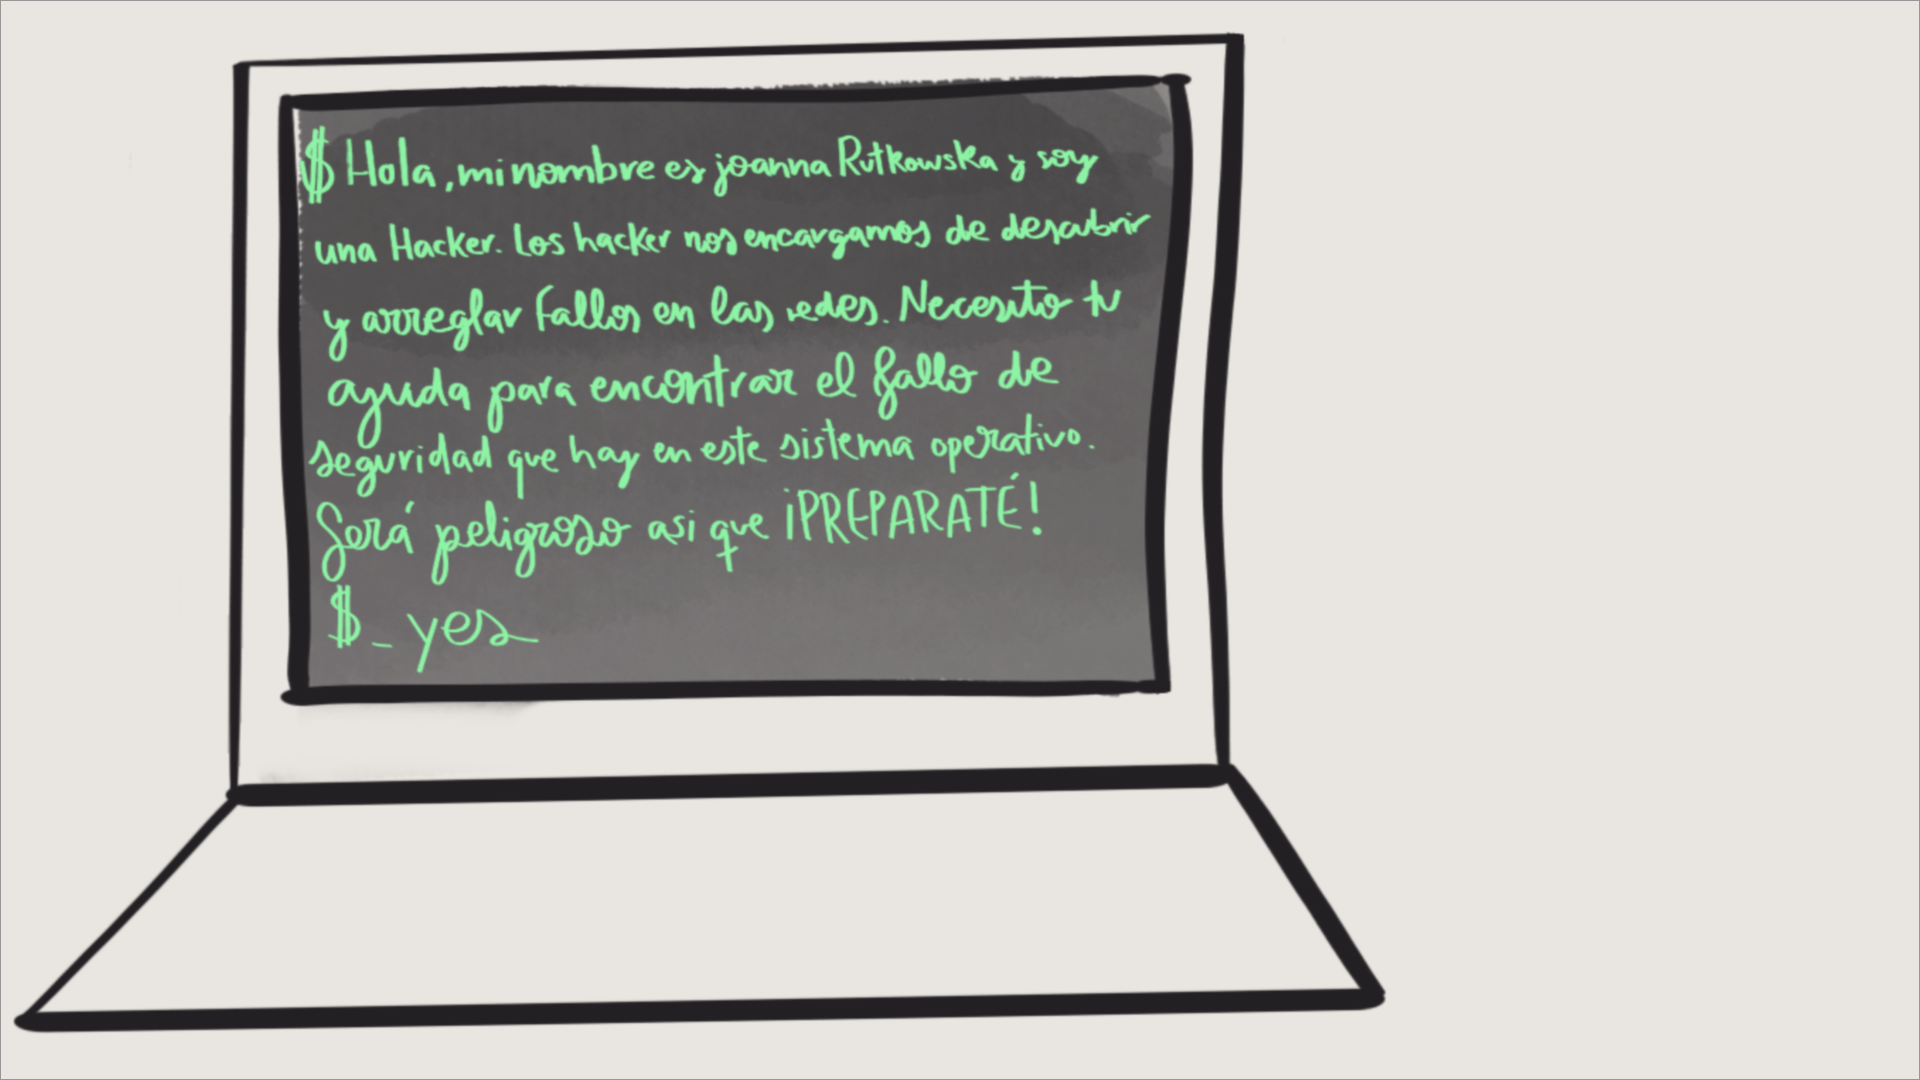 $ Hola, mi nombre es joanna Rutkowska y soy
una Hacker. Los hacker nos encargamos de descubrir
y arreglar fallos en las redes. Necesito tu
ayuda para encontrar el fallo de
seguridad que hay en este sistema operativo.
Será peligroso asi que ¡PREPARATÉ!
$_ yes